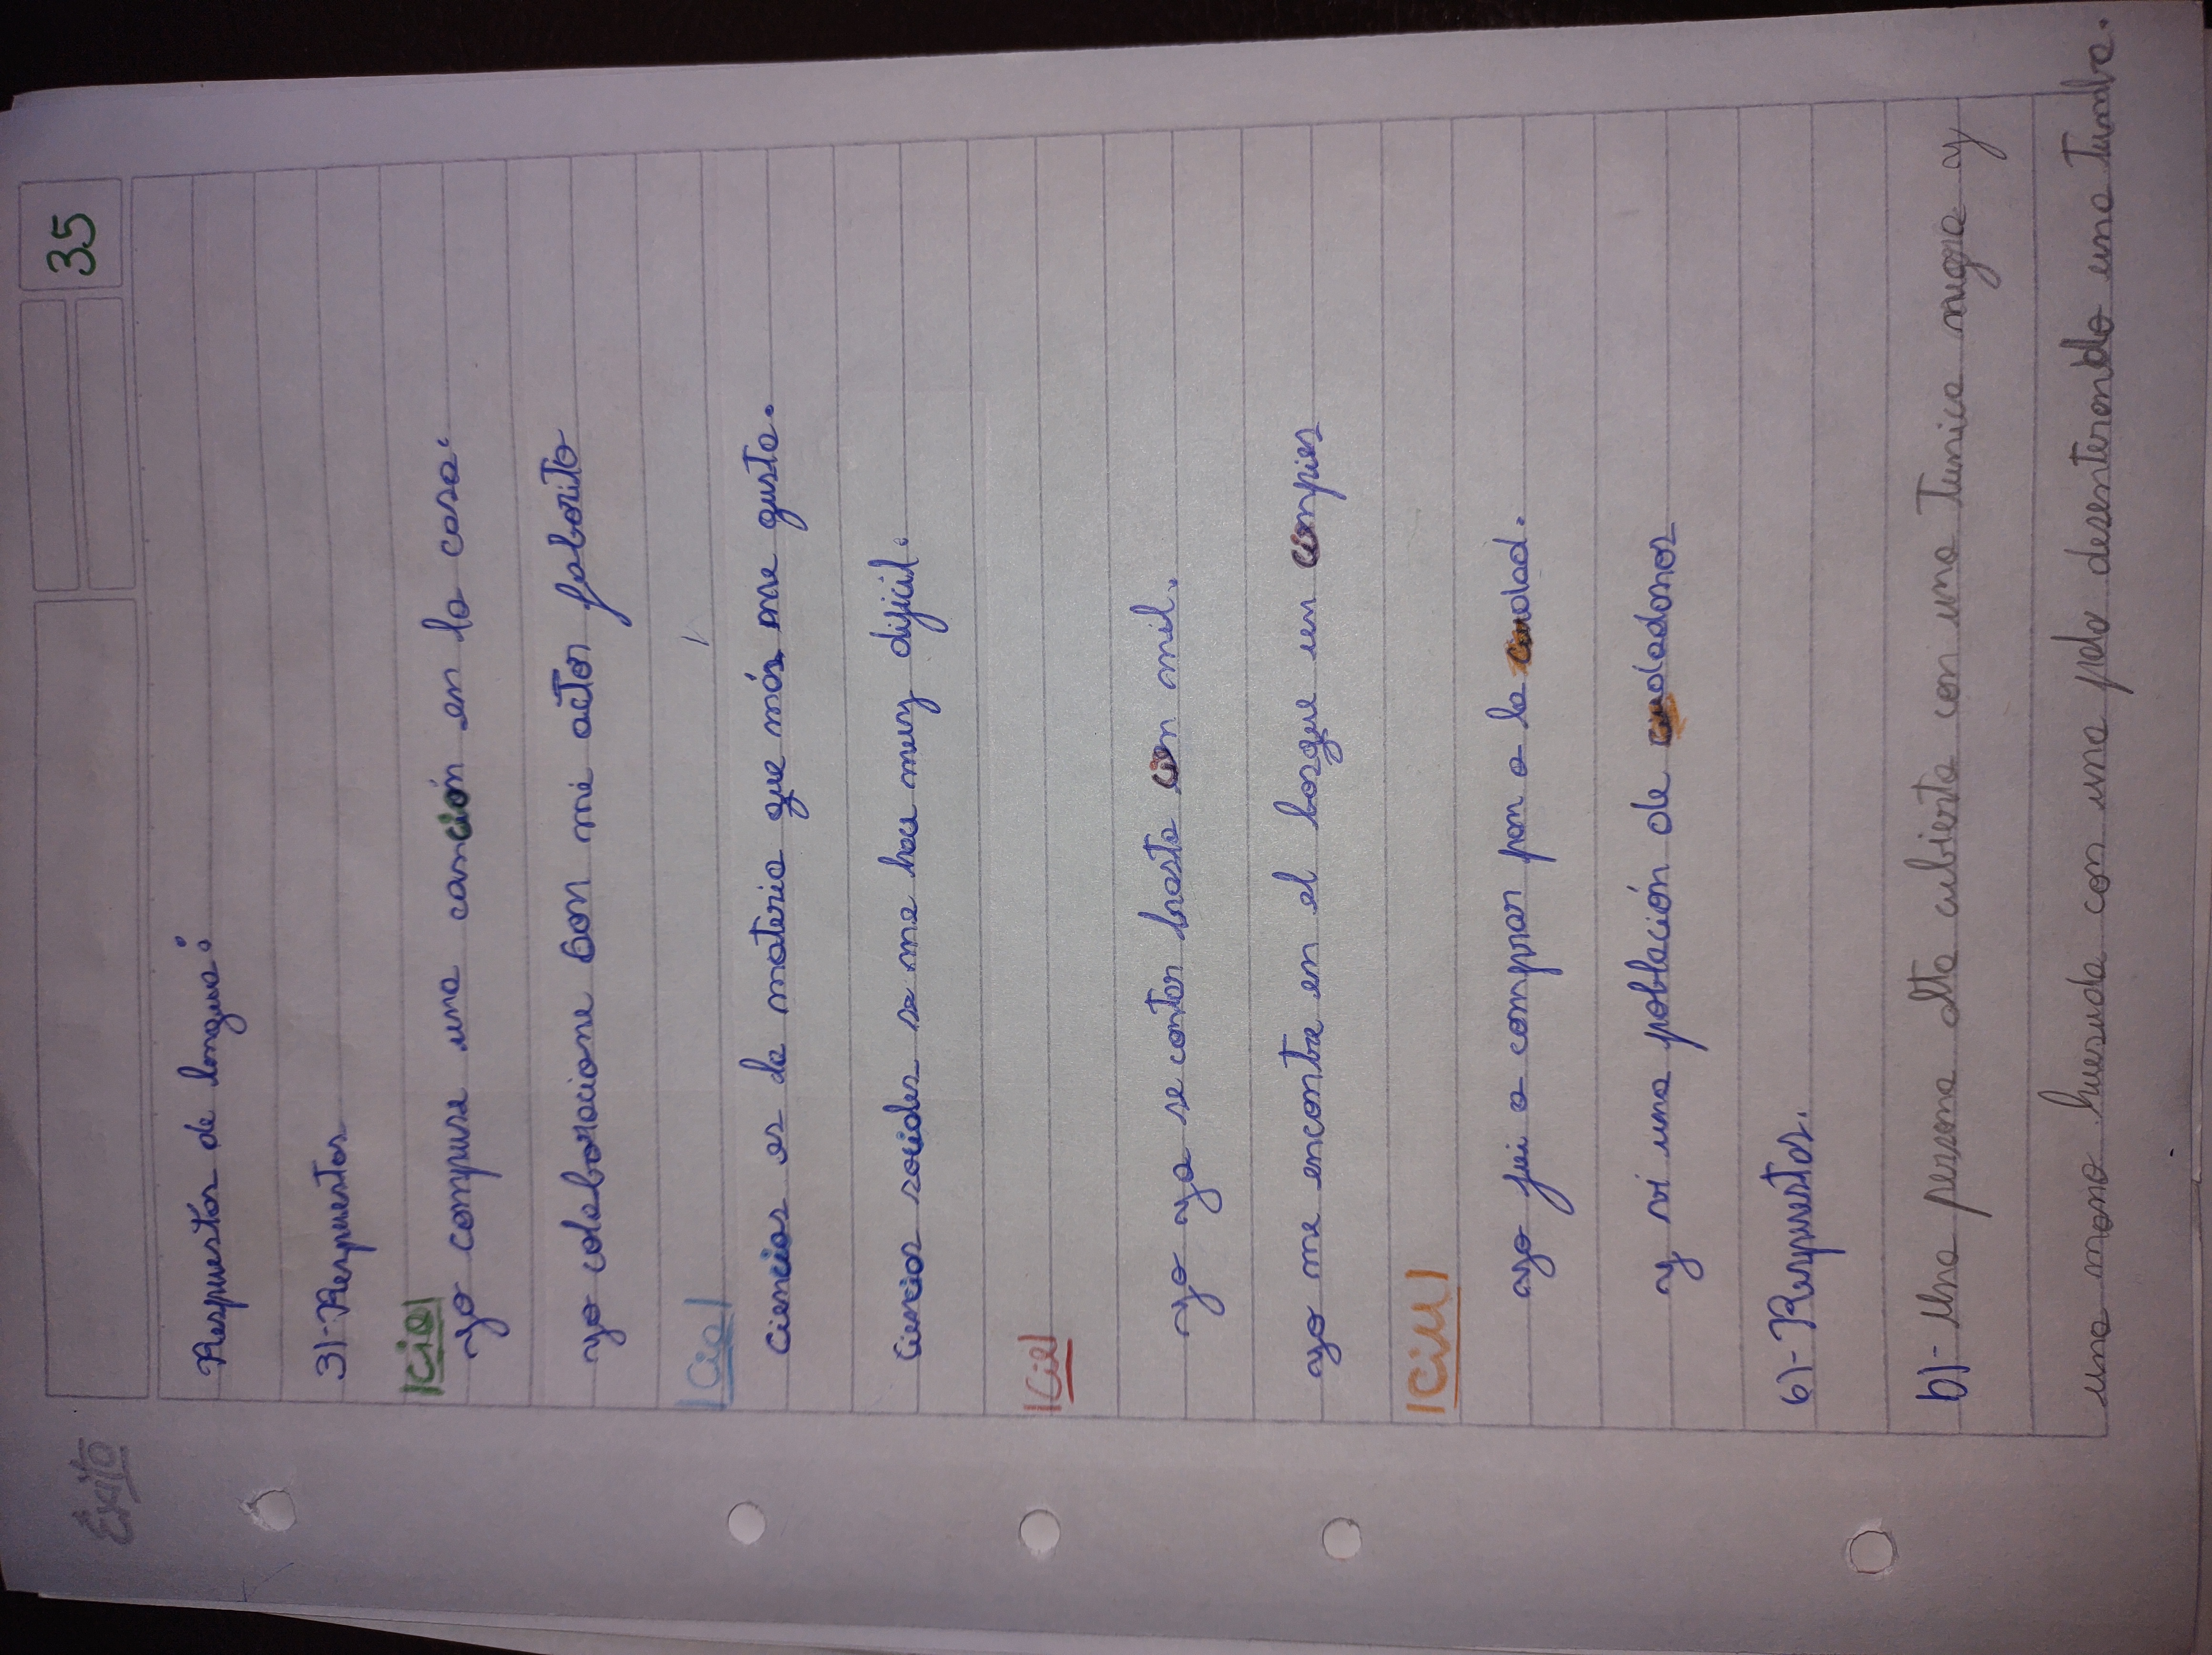 35
Éxito
Respuestas de lengua:
3)-Respuestas
|Cio|
yo compuse una canción en la casa.
yo colaboracione con mi actor faborito
|Cia|
Ciencias es la materia que más me gusta.
Ciencias sociales se me hace muy dificil.
|Cie|
yo ya se contar hasta cien mil.
yo me encontre en el bosque un cienpies
|Ciu|
yo fui a comprar pan a la ciudad.
y vi una población de ciudadanos
6)-Respuestas.
b)-Una persona alta cubierta con una Tunica negra y
una mano huesuda con una pala desenterrando una Tumba.